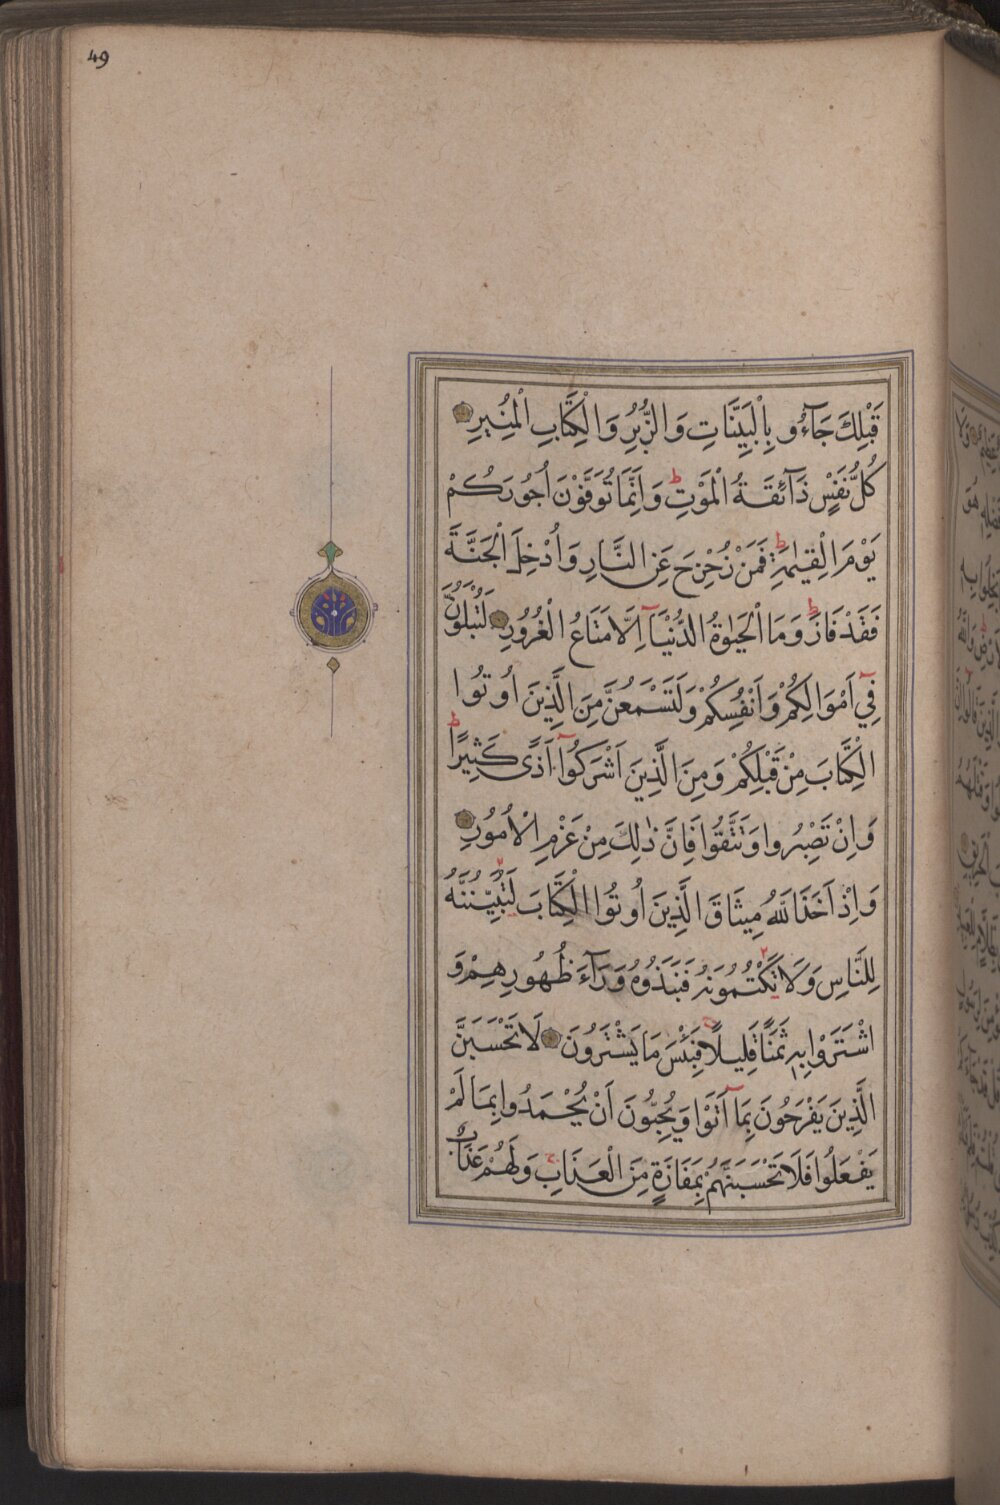 49
قَبْلِكَ جَآءُو بِالْبَيِّنَاتِ وَالزُّبُرِ وَالْكِتَابِ الْمُنِيرِ
كُلُّ نَفْسٍ ذَآئِقَةُ الْمَوْتِ ط وَاِنَّمَا تُوَفَّوْنَ اُجُورَكُمْ
يَوْمَ الْقِيٰمَةِ ط فَمَنْ زُحْزِحَ عَنِ النَّارِ وَاُدْخِلَ الْجَنَّةَ
فَقَدْ فَازَ ط وَمَا الْحَيٰوةُ الدُّنْيَآ اِلَّا مَتَاعُ الْغُرُورِ لَتُبْلَوُنَّ
فِيٓ اَمْوَالِكُمْ وَاَنْفُسِكُمْ وَلَتَسْمَعُنَّ مِنَ الَّذِينَ اُوتُوا
الْكِتَابَ مِنْ قَبْلِكُمْ وَمِنَ الَّذِينَ اَشْرَكُوٓا اَذًى كَثِيرًا ط
وَاِنْ تَصْبِرُوا وَتَتَّقُوا فَاِنَّ ذٰلِكَ مِنْ عَزْمِ الْاُمُورِ
وَاِذْ اَخَذَ اللّٰهُ مِيثَاقَ الَّذِينَ اُوتُوا الْكِتَابَ لَتُبَيِّنُنَّهُ
لِلنَّاسِ وَلَا تَكْتُمُونَهُ فَنَبَذُوهُ وَرَآءَ ظُهُورِهِمْ وَ
اشْتَرَوْا بِهِ ثَمَنًا قَلِيلًا فَبِئْسَ مَا يَشْتَرُونَ لَا تَحْسَبَنَّ
الَّذِينَ يَفْرَحُونَ بِمَآ اَتَوْا وَيُحِبُّونَ اَنْ يُحْمَدُوا بِمَا لَمْ
يَفْعَلُوا فَلَا تَحْسَبَنَّهُمْ بِمَفَازَةٍ مِنَ الْعَذَابِ وَلَهُمْ عَذَابٌ